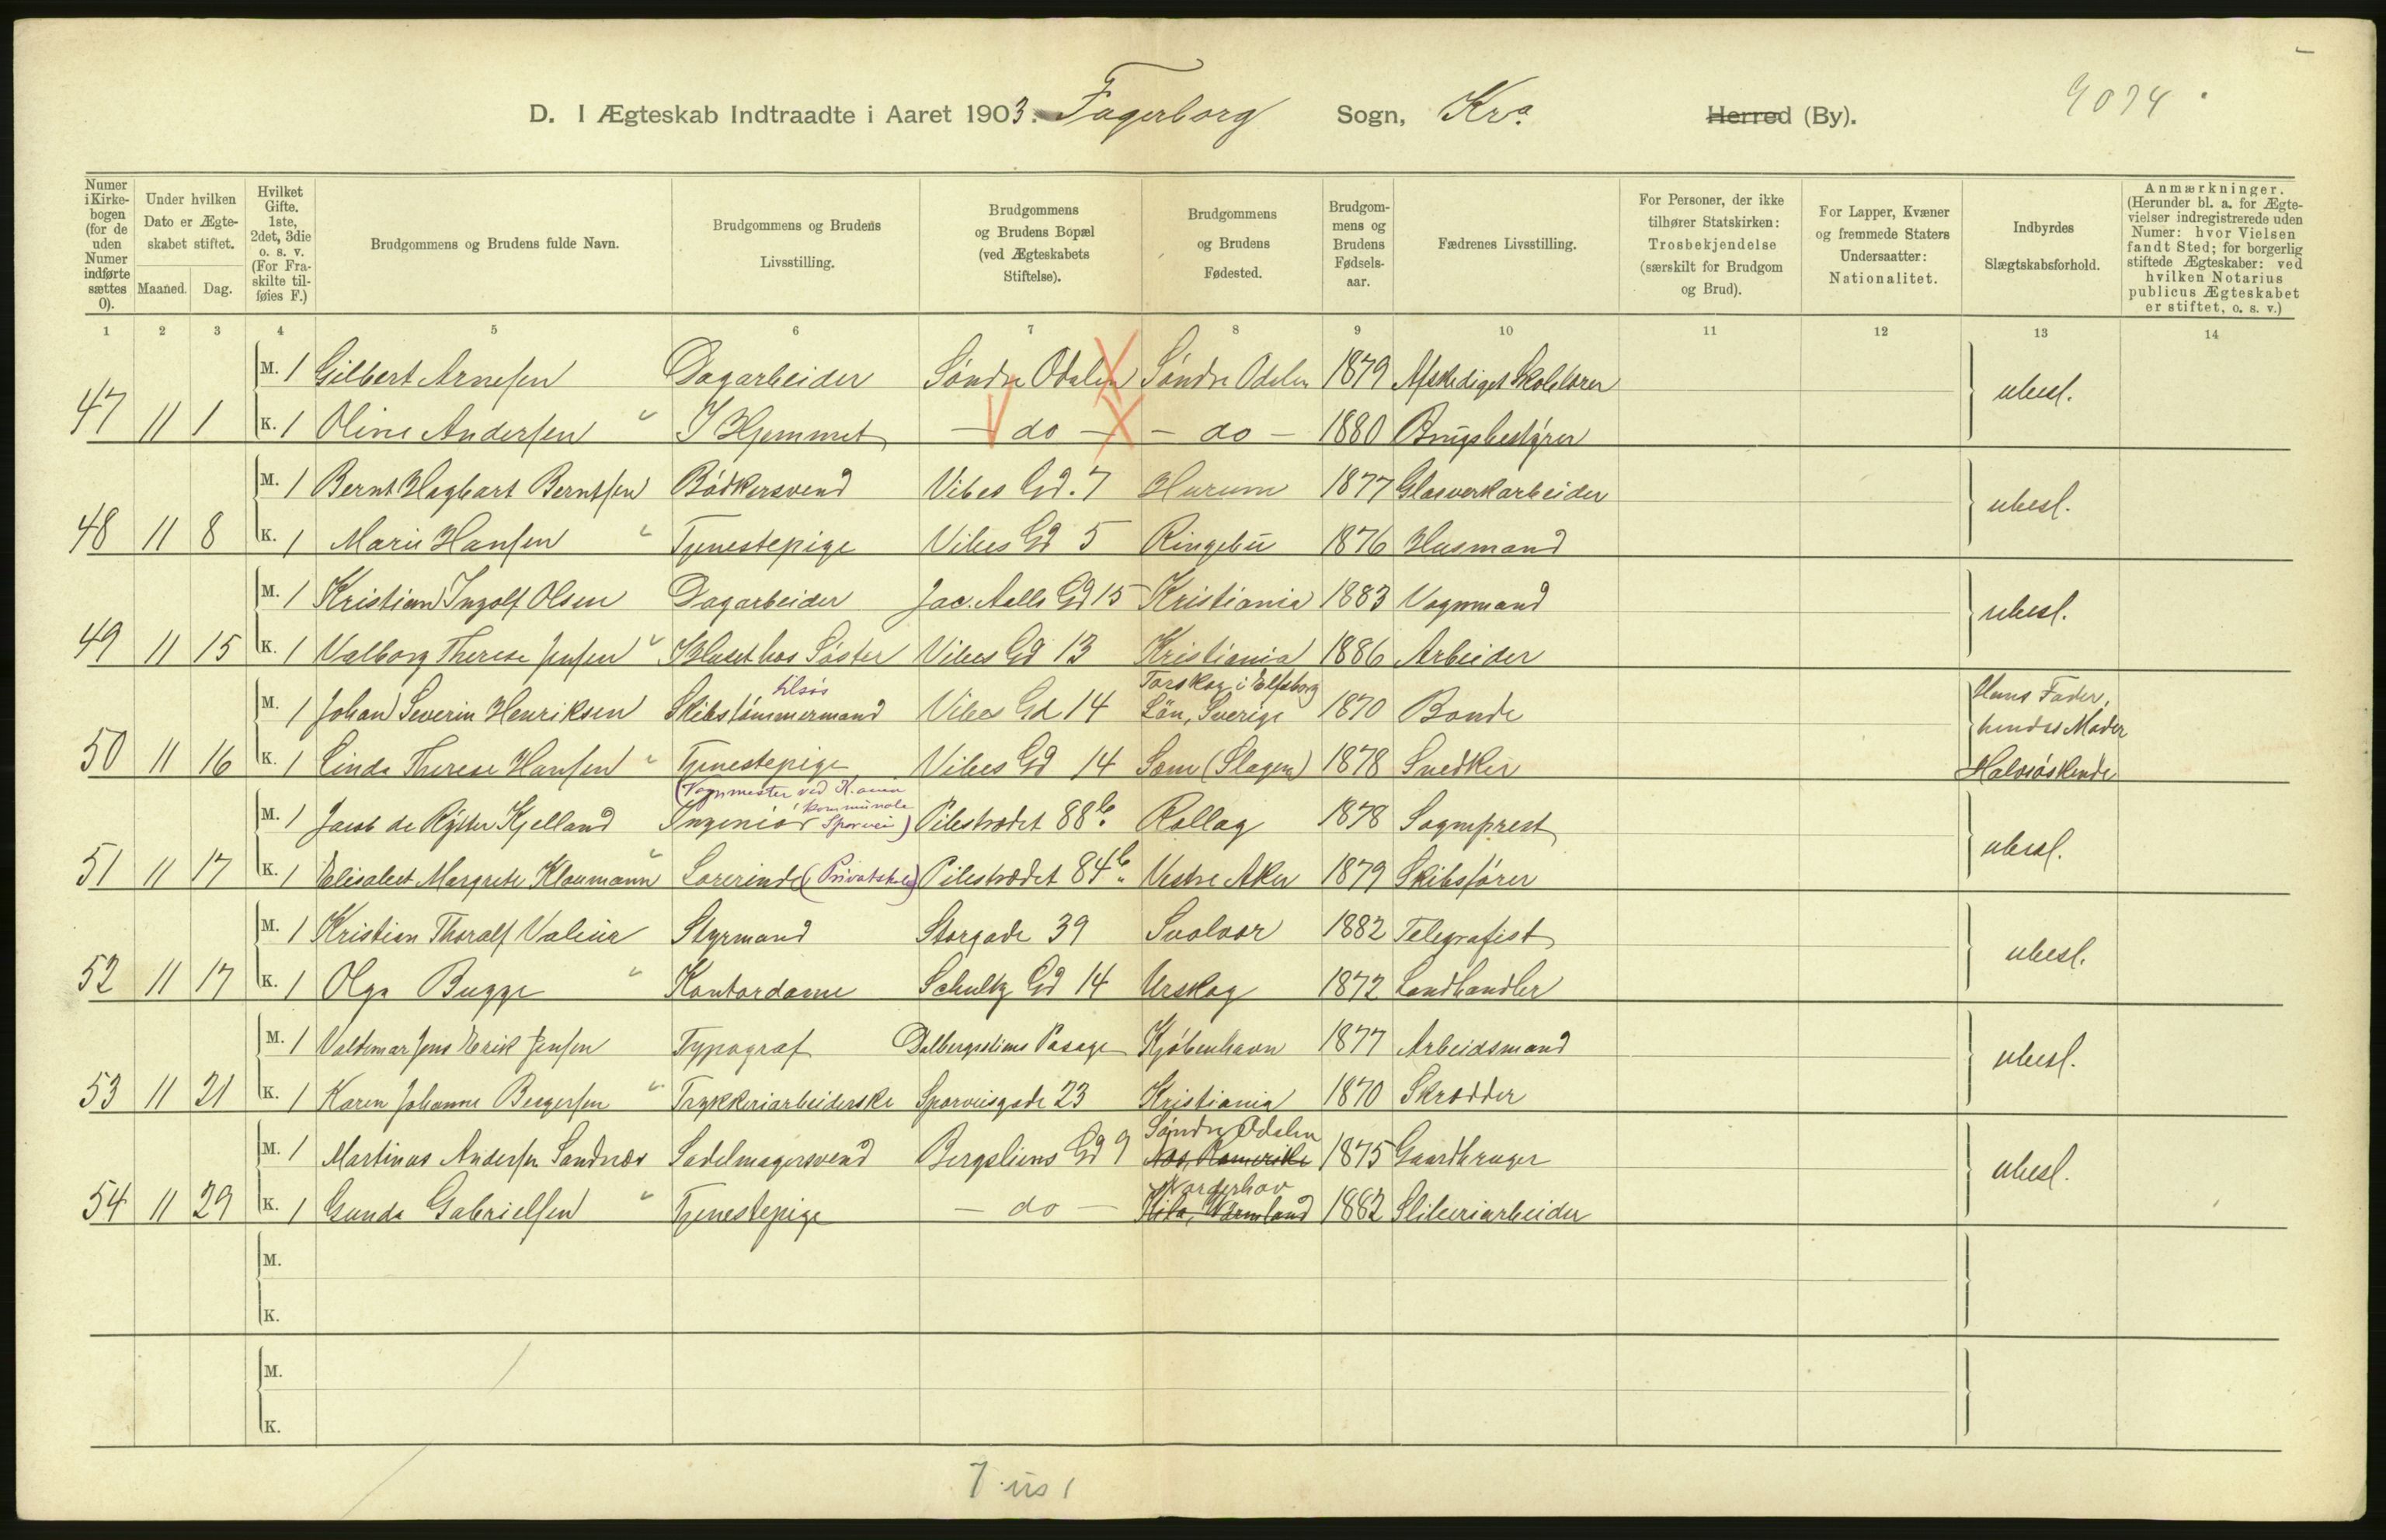 9074
D. I Ægteskab Indtraadte i Aaret 1903. Fagerborg Sogn, Kra. Herred (By).
Numer i Kirkebogen (for de uden Numer indførte sættes 0).
Under hvilken Dato er Ægteskabet stiftet.
Maaned. Dag.
Hvilket Gifte. 1ste, 2det, 3die o. s. v. (For Fraskilte tilføies F.)
Brudgommens og Brudens fulde Navn.
Brudgommens og Brudens Livsstilling.
Brudgommens og Brudens Bopæl (ved Ægteskabets Stiftelse).
Brudgommens og Brudens Fødested.
Brudgommens og Brudens Fødselsaar.
Fædrenes Livsstilling.
For Personer, der ikke tilhører Statskirken: Trosbekjendelse (særskilt for Brudgom og Brud).
For Lapper, Kvæner og fremmede Staters Undersaatter: Nationalitet.
Indbyrdes Slægtskabsforhold.
Anmærkninger. (Herunder bl. a. for Ægtevielser indregistrerede uden Numer: hvor Vielsen fandt Sted; for borgerlig stiftede Ægteskaber: ved hvilken Notarius publicus Ægteskabet er stiftet, o. s. v.)
1 2 3 4 5 6 7 8 9 10 11 12 13 14
M. 1 Gilbert Arnesen Dagarbeider Søndre Odalen Søndre Odalen 1879 Afskediget Skolelærer ubesl.
47 11 1 K. 1 Oline Andersen " I Hjemmet - do - - do - 1880 Brugsbestyrer
M. 1 Bernt Hagbart Berntsen Bødkersvend Vibes Gd. 7 Hurum 1877 Glasverkarbeider ubesl.
48 11 8 K. 1 Marie Hansen " Tjenestepige Vibes Gd 5 Ringebu 1876 Husmand
M. 1 Kristian Ingolf Olsen Dagarbeider Jac. Aalls Gd 15 Kristiania 1883 Vognmand ubesl.
49 11 15 K. 1 Valborg Therese Jensen " I Huset hos Søster Vibes Gd 13 Kristiania 1886 Arbeider
tilsøs Torskog i Elfsborg
M. 1 Johan Severin Henriksen Skibstømmermand Vibes Gd 14 Län, Sverige 1870 Bonde Hans Fader, hendes Moder
50 11 16 K. 1 Linda Therese Hansen " Tjenestepige Vibes Gd 14 Sem (Slagen) 1878 Snedker Halvsøskende
(Vognmester ved K.ania kommunale Sporvei)
M. 1 Jacob de Rytter Kjelland Ingeniør Pilestrædet 88b. Rollag 1878 Sogneprest ubesl.
51 11 17 K. 1 Elisabeth Margrete Klaumann " Lærerinde (Privatskole) Pilestrædet 84b. Vestre Aker 1879 Skibsfører
M. 1 Kristian Thoralf Valeur Styrmand Storgade 39 Svolvær 1882 Telegrafist ubesl.
52 11 17 K. 1 Olga Bugge " Kontordame Schultz Gd 14 Urskog 1872 Landhandler
M. 1 Valdemar Jens Erik Jensen Typograf Dalbergstiens Pasage Kjøbenhavn 1877 Arbeidsmand ubesl.
53 11 21 K. 1 Karen Johanne Bergersen " Trykkeriarbeiderske Sporveisgade 23 Kristiania 1870 Skrædder
Søndre Odalen
M. 1 Martinus Andersen Sandnæs Sadelmagersvend Bergsliens Gd 9 Næs, Romerike 1875 Gaardbruger ubesl.
Norderhov
54 11 29 K. 1 Gunda Gabrielsen " Tjenestepige - do - Kila, Wärmland 1882 Sliberiarbeider
M.
K.
M.
K.